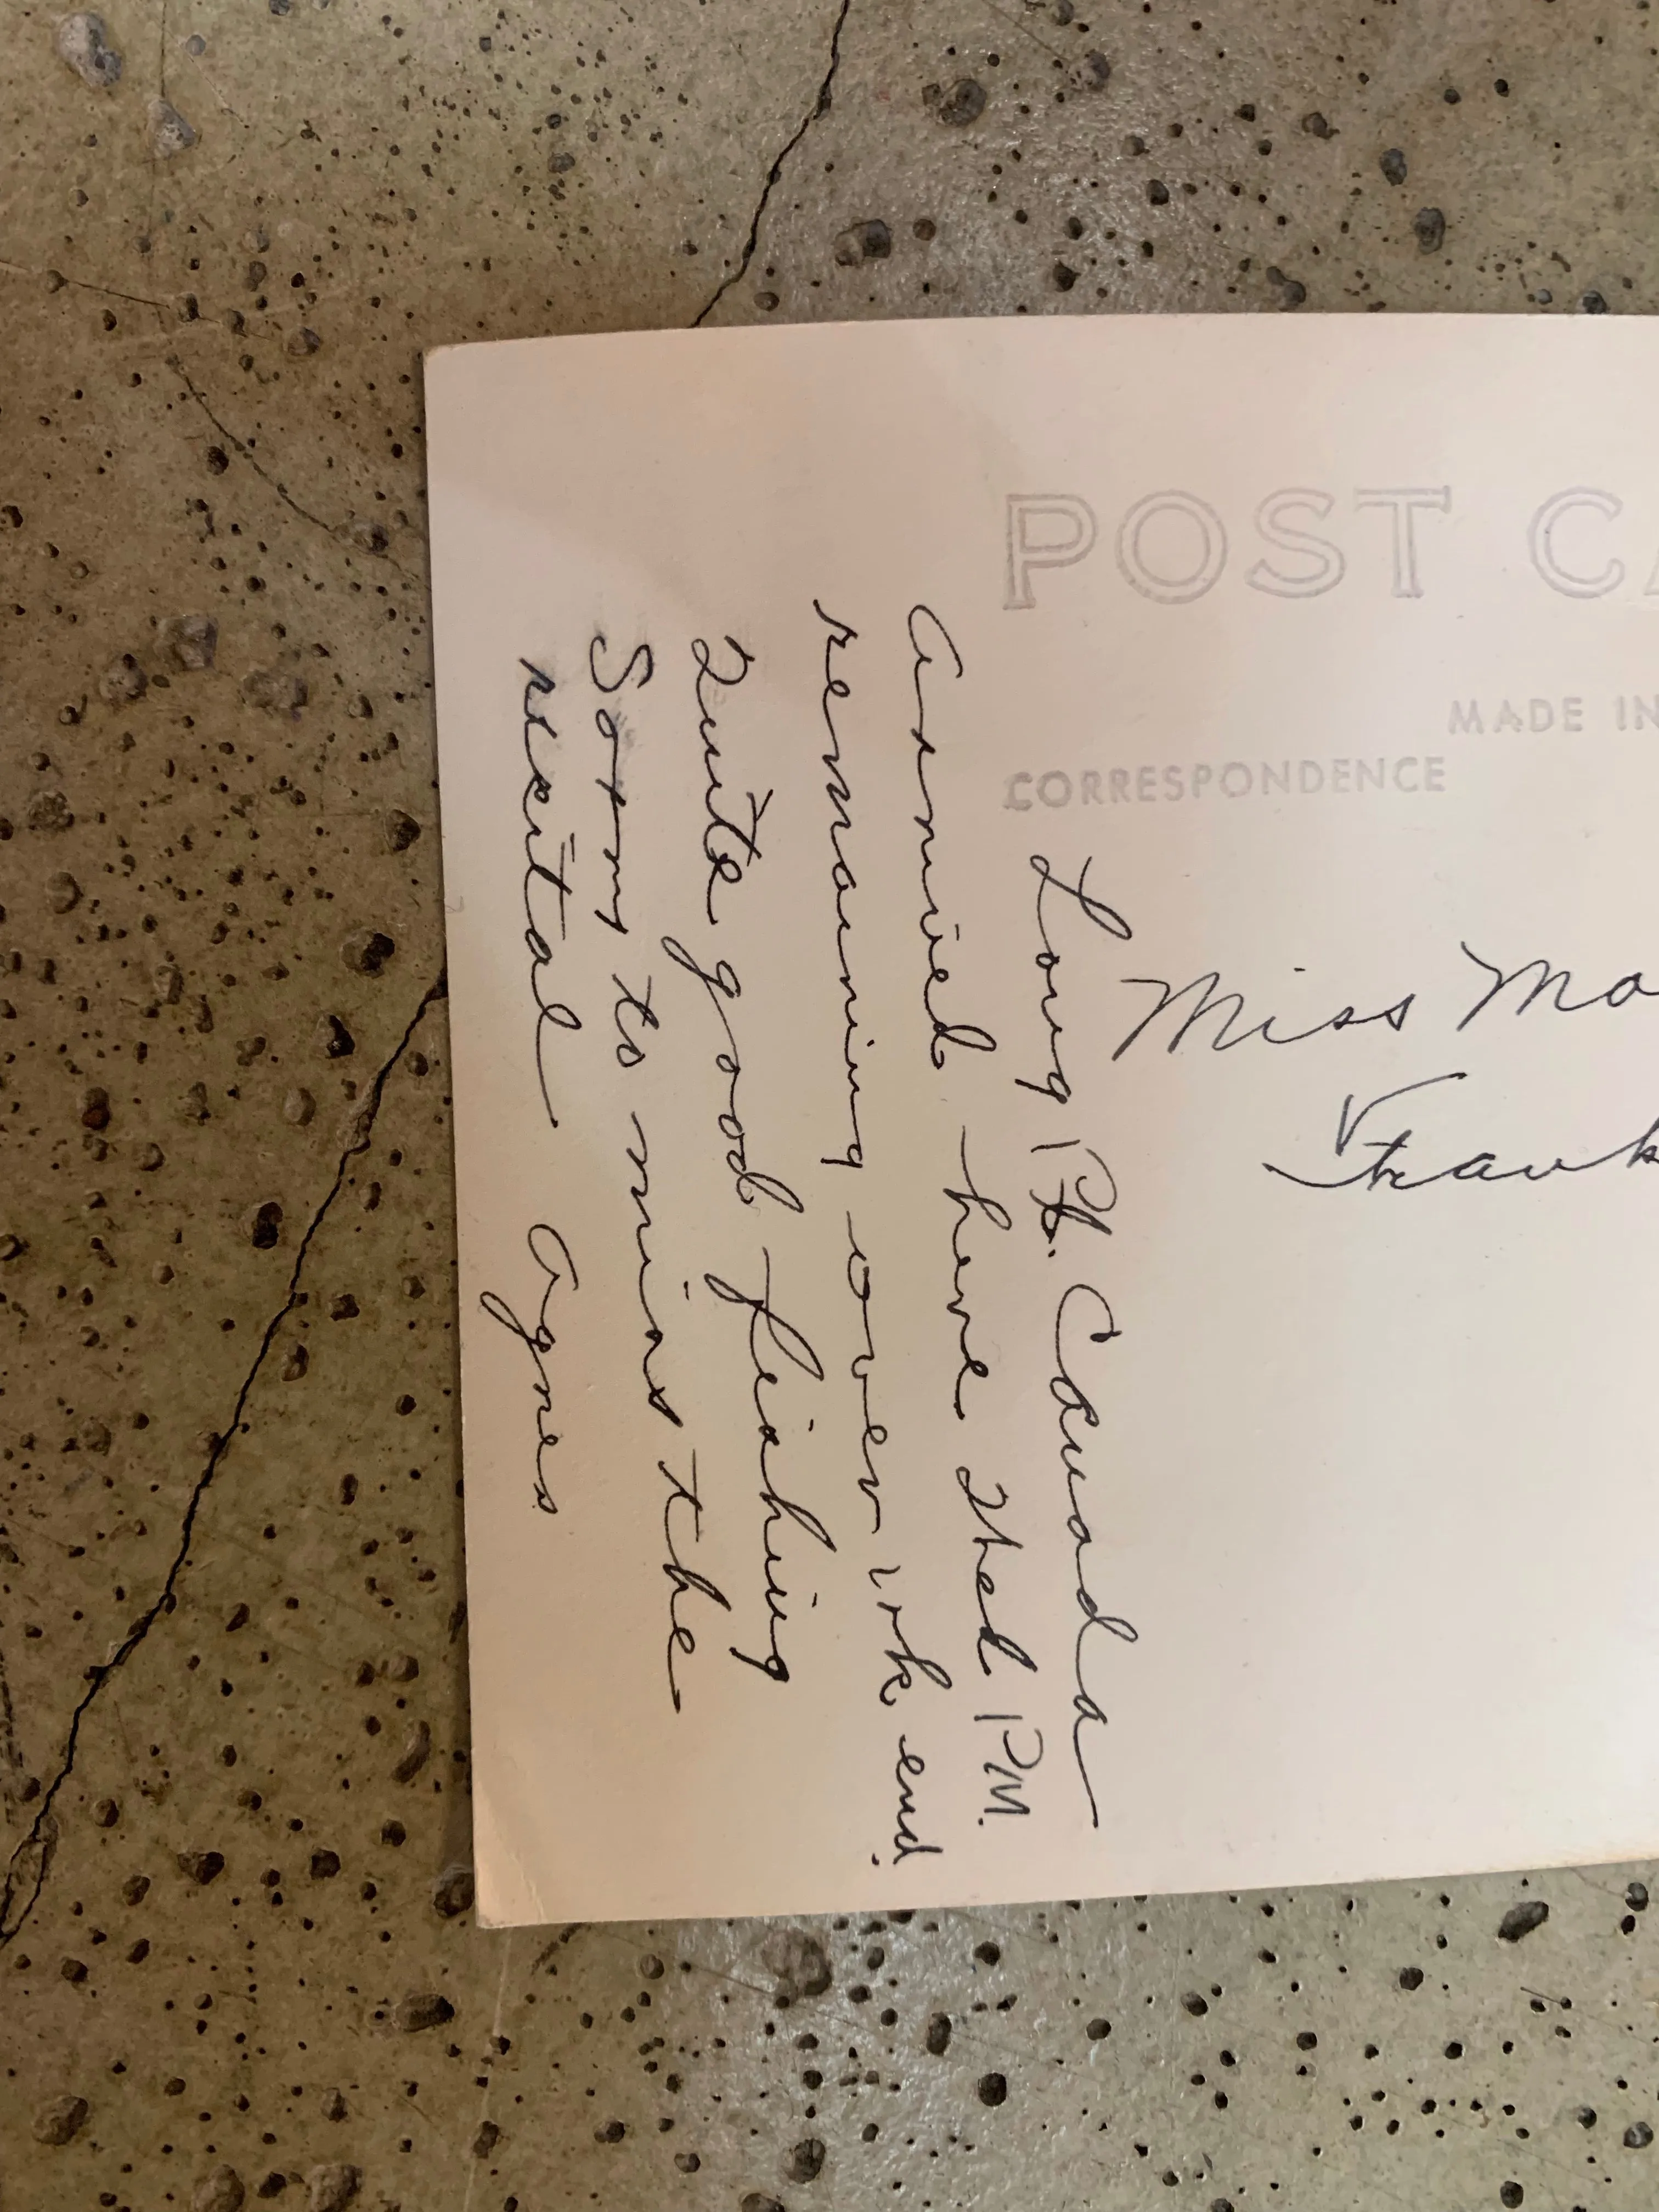 POST CA
MADE IN
CORRESPONDENCE
Miss Ma
Frank
Long Pt. Canada
Arrived here Wed PM.
remaining over wk, end.
Quite good fishing
Sorry to miss the
recital Agnes